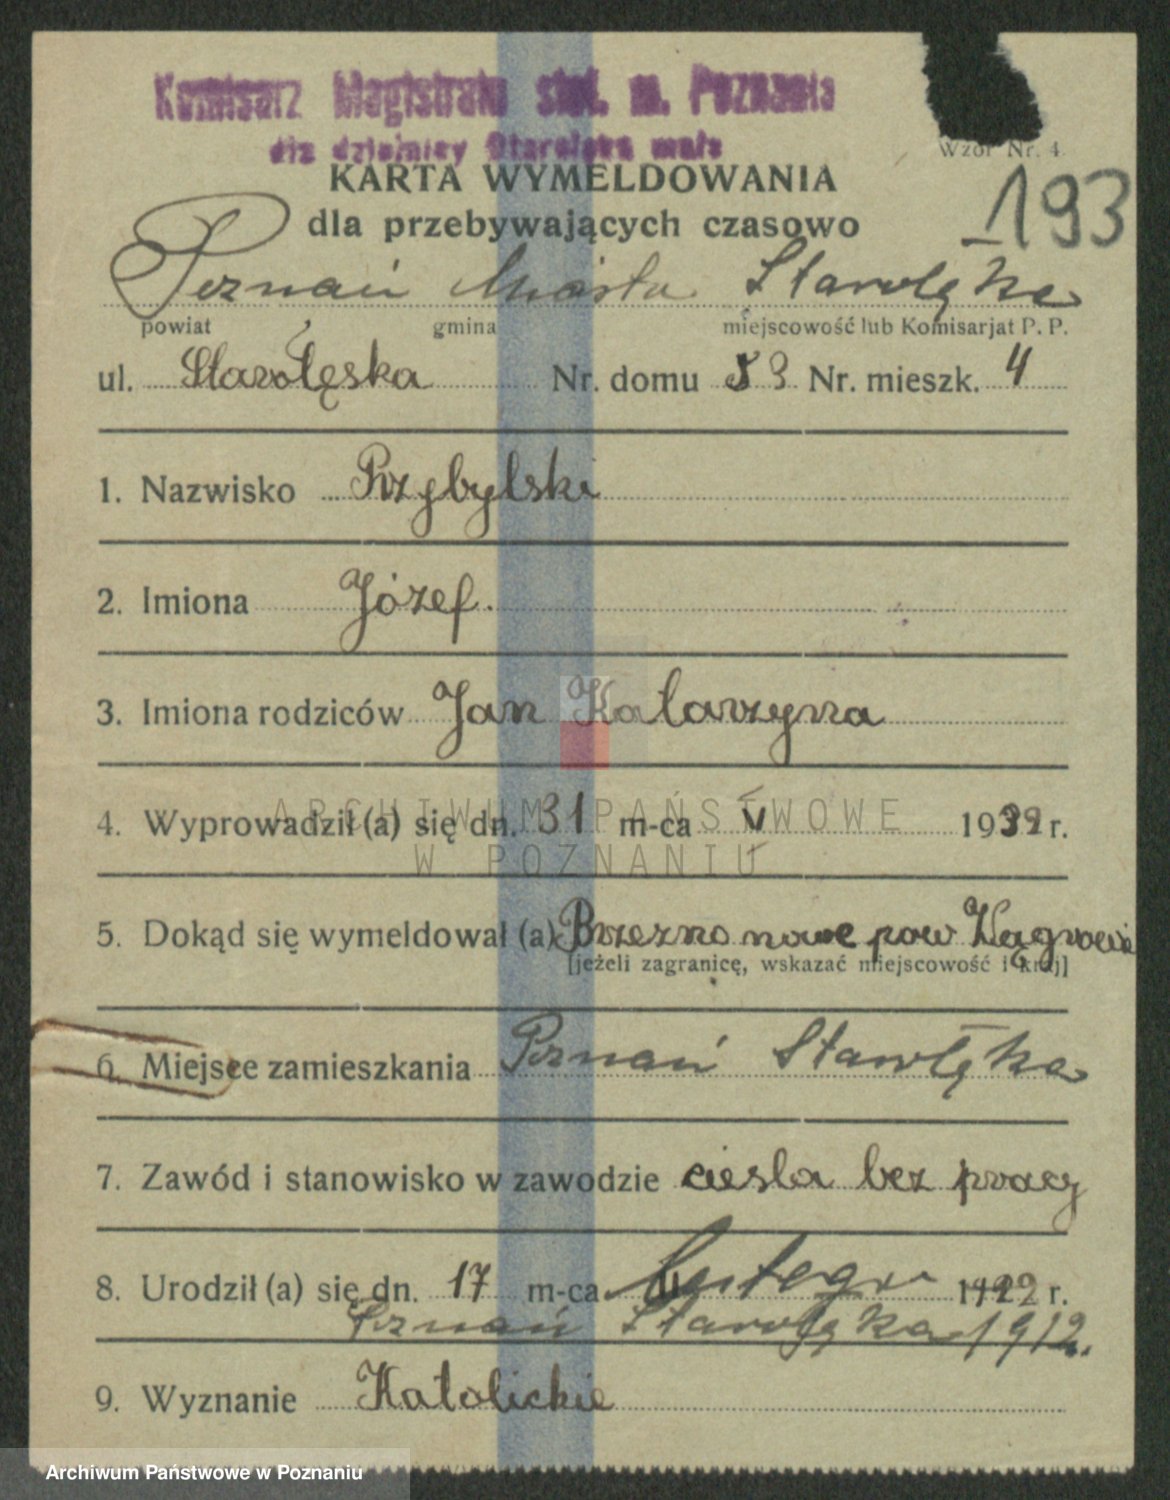 Komisarz Magistratu stoł. m. Poznania
dla dzielnicy Starołęka mała
Wzór Nr. 4.
KARTA WYMELDOWANIA
dla przebywających czasowo
193
Poznań Miasto Starołęka
powiat gmina miejscowość lub Komisarjat P. P.
ul. Starołęska Nr. domu Nr. mieszk. 4
1. Nazwisko Przybylski
2. Imiona Józef.
3. Imiona rodziców Jan Katarzyna
4. Wyprowadził (a) się dn. 31 m-ca V 1932 r.
ARCHIWUM PAŃSTWOWE
W POZNANIU
5. Dokąd się wymeldował (a) Brzezno nowe pow Wągrowie
[jeżeli zagranicę, wskazać miejscowość i kraj]
6. Miejsce zamieszkania Poznań Starołęka
7. Zawód i stanowisko w zawodzie ciesla bez pracy
8. Urodził (a) się dn. 17 m-ca Lutego r.
Poznań Starołęka 1912.
9. Wyznanie Katolickie
Archiwum Państwowe w Poznaniu